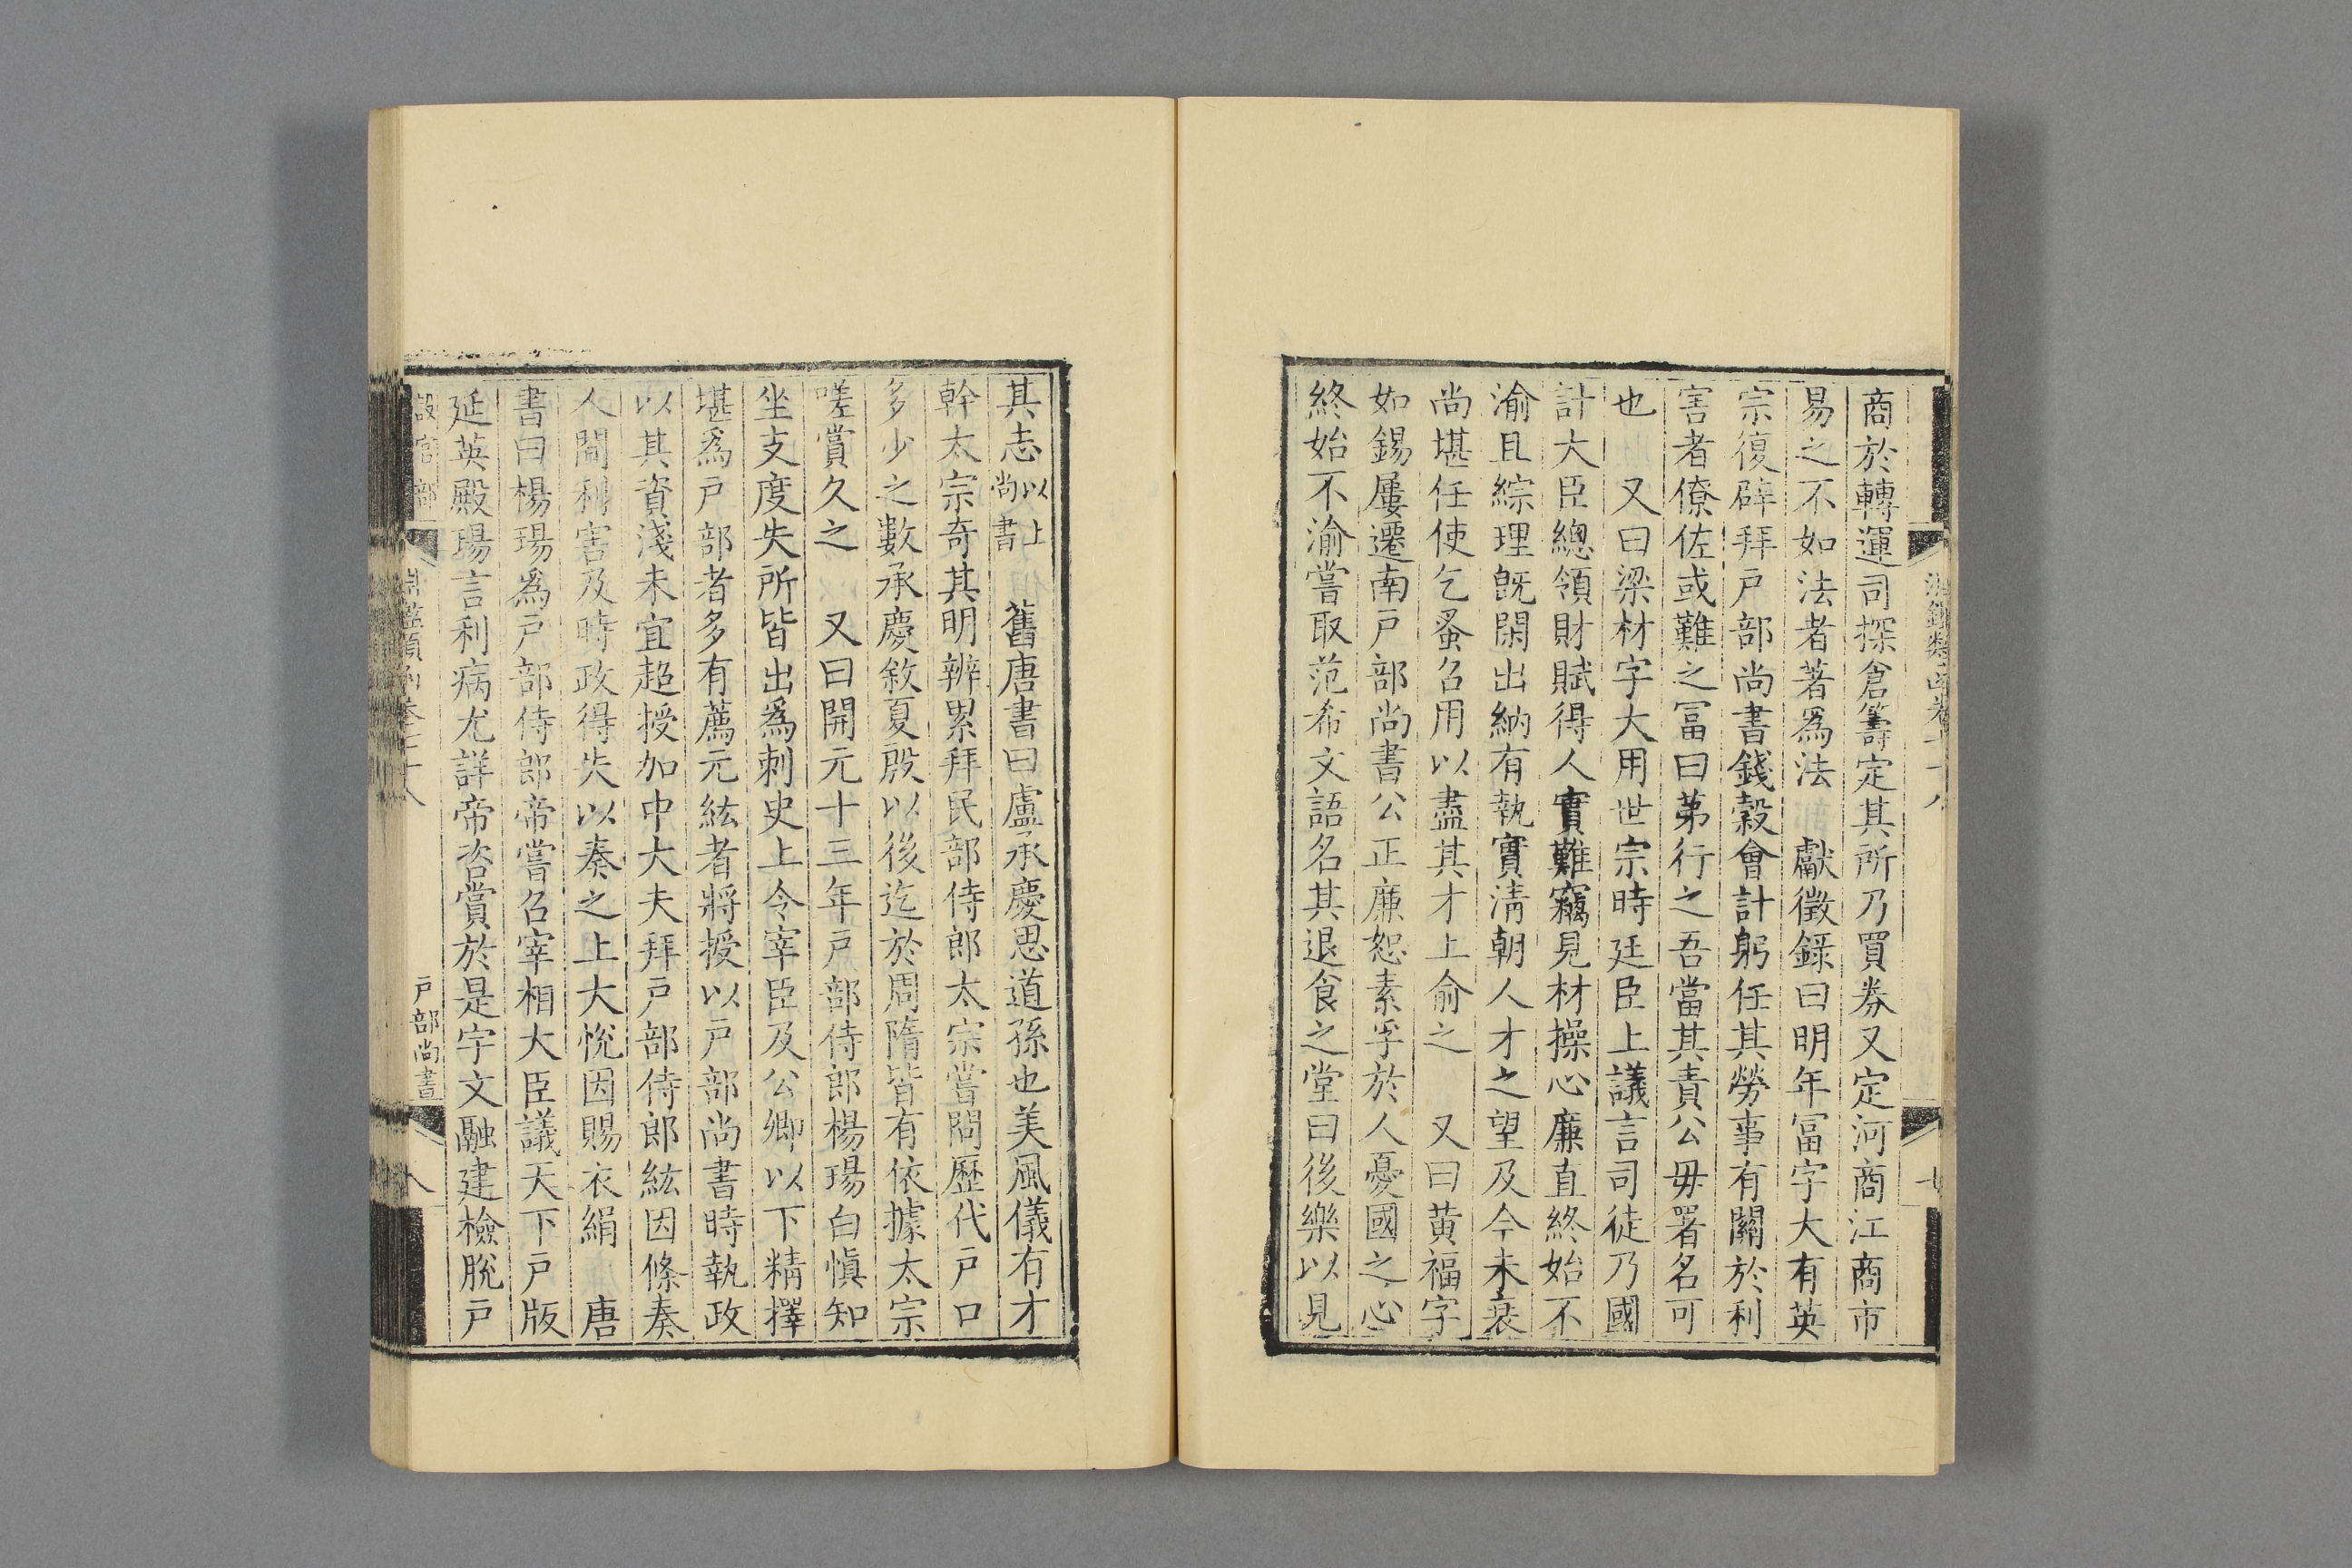 商於轉運司探倉籌定其所乃買券又定河商江商市
易之不如法者著爲法　獻徵錄曰明年冨字大有英
宗復辟拜戸部尚書錢榖會計躬任其勞事有關於利
害者僚佐或難之冨曰苐行之吾當其責公毋署名可
也　又曰梁材字大用世宗時廷臣上議言司徒乃國
計大臣總領財賦得人實難竊見材操心廉直終始不
渝且綜理旣閑出納有執實淸朝人才之望及今未衰
尚堪任使乞蚤召用以盡其才上俞之　又曰黃福字
如錫屢遷南戸部尚書公正廉恕素孚於人憂國之心
終始不渝嘗取范希文語名其退食之堂曰後樂以見
其志以上尚書　舊唐書曰盧承慶思道孫也美風儀有才
幹太宗奇其明辨累拜民部侍郎太宗嘗問歷代戸口
多少之數承慶敘夏殷以後迄於周隋皆有依據太宗
嗟賞久之　又曰開元十三年戸部侍郎楊瑒白愼知
坐支度失所皆出爲刺史上令宰臣及公卿以下精擇
堪爲戸部者多有薦元紘者將授以戸部尚書時執政
以其資淺未宜超授加中大夫拜戸部侍郎紘因條奏
人間利害及時政得失以奏之上大悅因賜衣絹　唐
書曰楊瑒爲戸部侍郎帝嘗召宰相大臣議天下戸版
延英殿瑒言利病尤詳帝咨賞於是宇文融建檢脫戸
設官部
戸部尚書
八